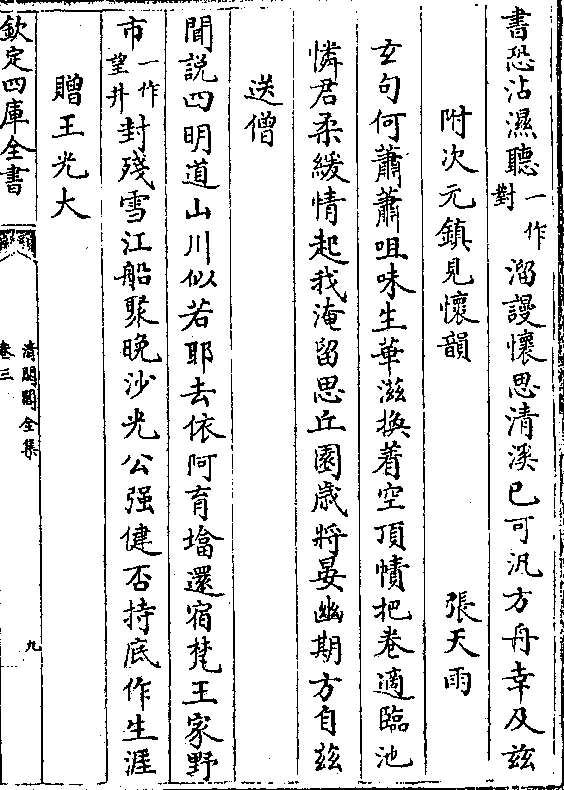 書恐沾濕聽一作對溜謾懷思清溪已可汎方舟幸及茲
附次元鎮見懷韻　張天雨
玄句何蕭蕭咀味生華滋換着空頂幘把卷適臨池
憐君柔緩情起我淹留思丘園歳將晏幽期方自兹
送僧
聞説四明道山川似若耶去依阿育㙮還宿梵王家野
市一作望井封殘雪江船聚晚沙光公强健否持底作生涯
贈王光大
欽定四庫全書
清閟閣全集
卷三
九